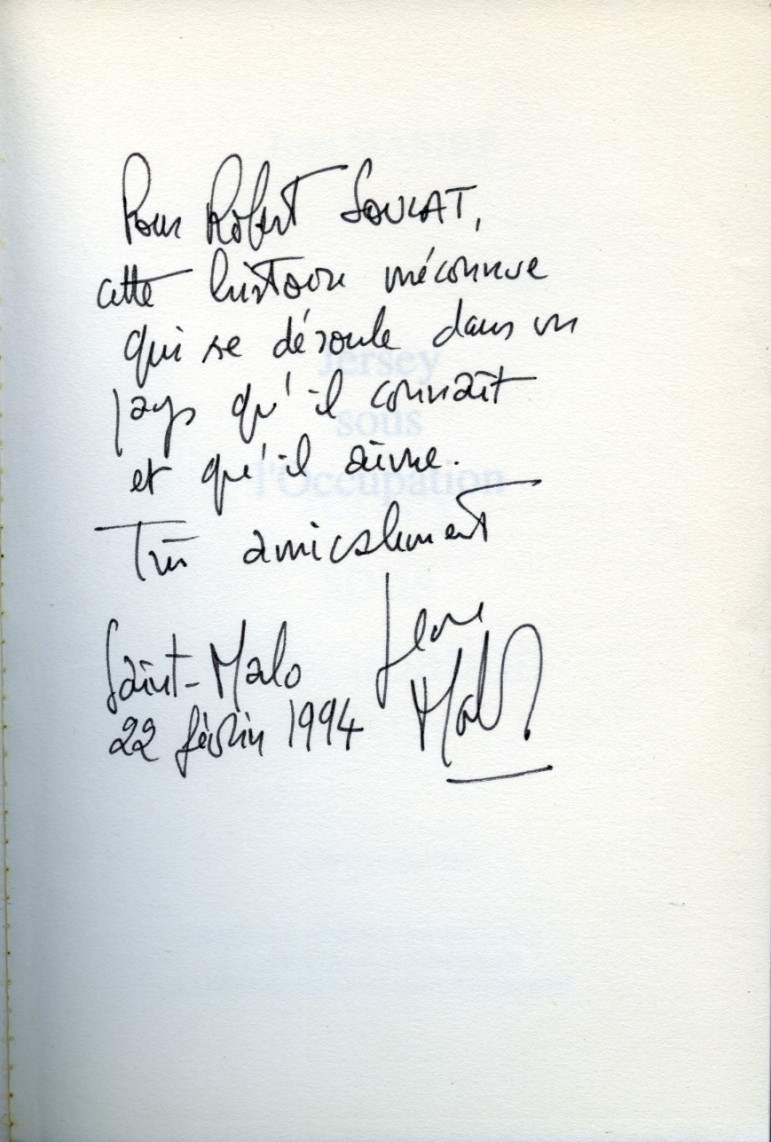 Pour Robert SOULAT,
cette histoire méconnue
qui se déroule dans un
pays qu'il connaît
et qu'il aime.
Très amicalement
Jean
Saint-Malo
22 février 1994
Jersey
sous
l'Occupation